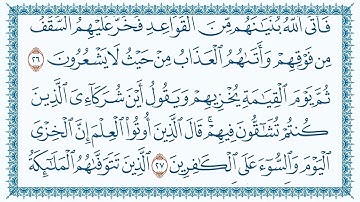 فَأَتَى ٱللَّهُ بُنْيَـٰنَهُم مِّنَ ٱلْقَوَاعِدِ فَخَرَّ عَلَيْهِمُ ٱلسَّقْفُ
مِن فَوْقِهِمْ وَأَتَىٰهُمُ ٱلْعَذَابُ مِنْ حَيْثُ لَا يَشْعُرُونَ ٢٦
ثُمَّ يَوْمَ ٱلْقِيَـٰمَةِ يُخْزِيهِمْ وَيَقُولُ أَيْنَ شُرَكَآءِىَ ٱلَّذِينَ
كُنتُمْ تُشَـٰٓقُّونَ فِيهِمْ ۚ قَالَ ٱلَّذِينَ أُوتُوا۟ ٱلْعِلْمَ إِنَّ ٱلْخِزْىَ
ٱلْيَوْمَ وَٱلسُّوٓءَ عَلَى ٱلْكَـٰفِرِينَ ٢٧ ٱلَّذِينَ تَتَوَفَّىٰهُمُ ٱلْمَلَـٰٓئِكَةُ